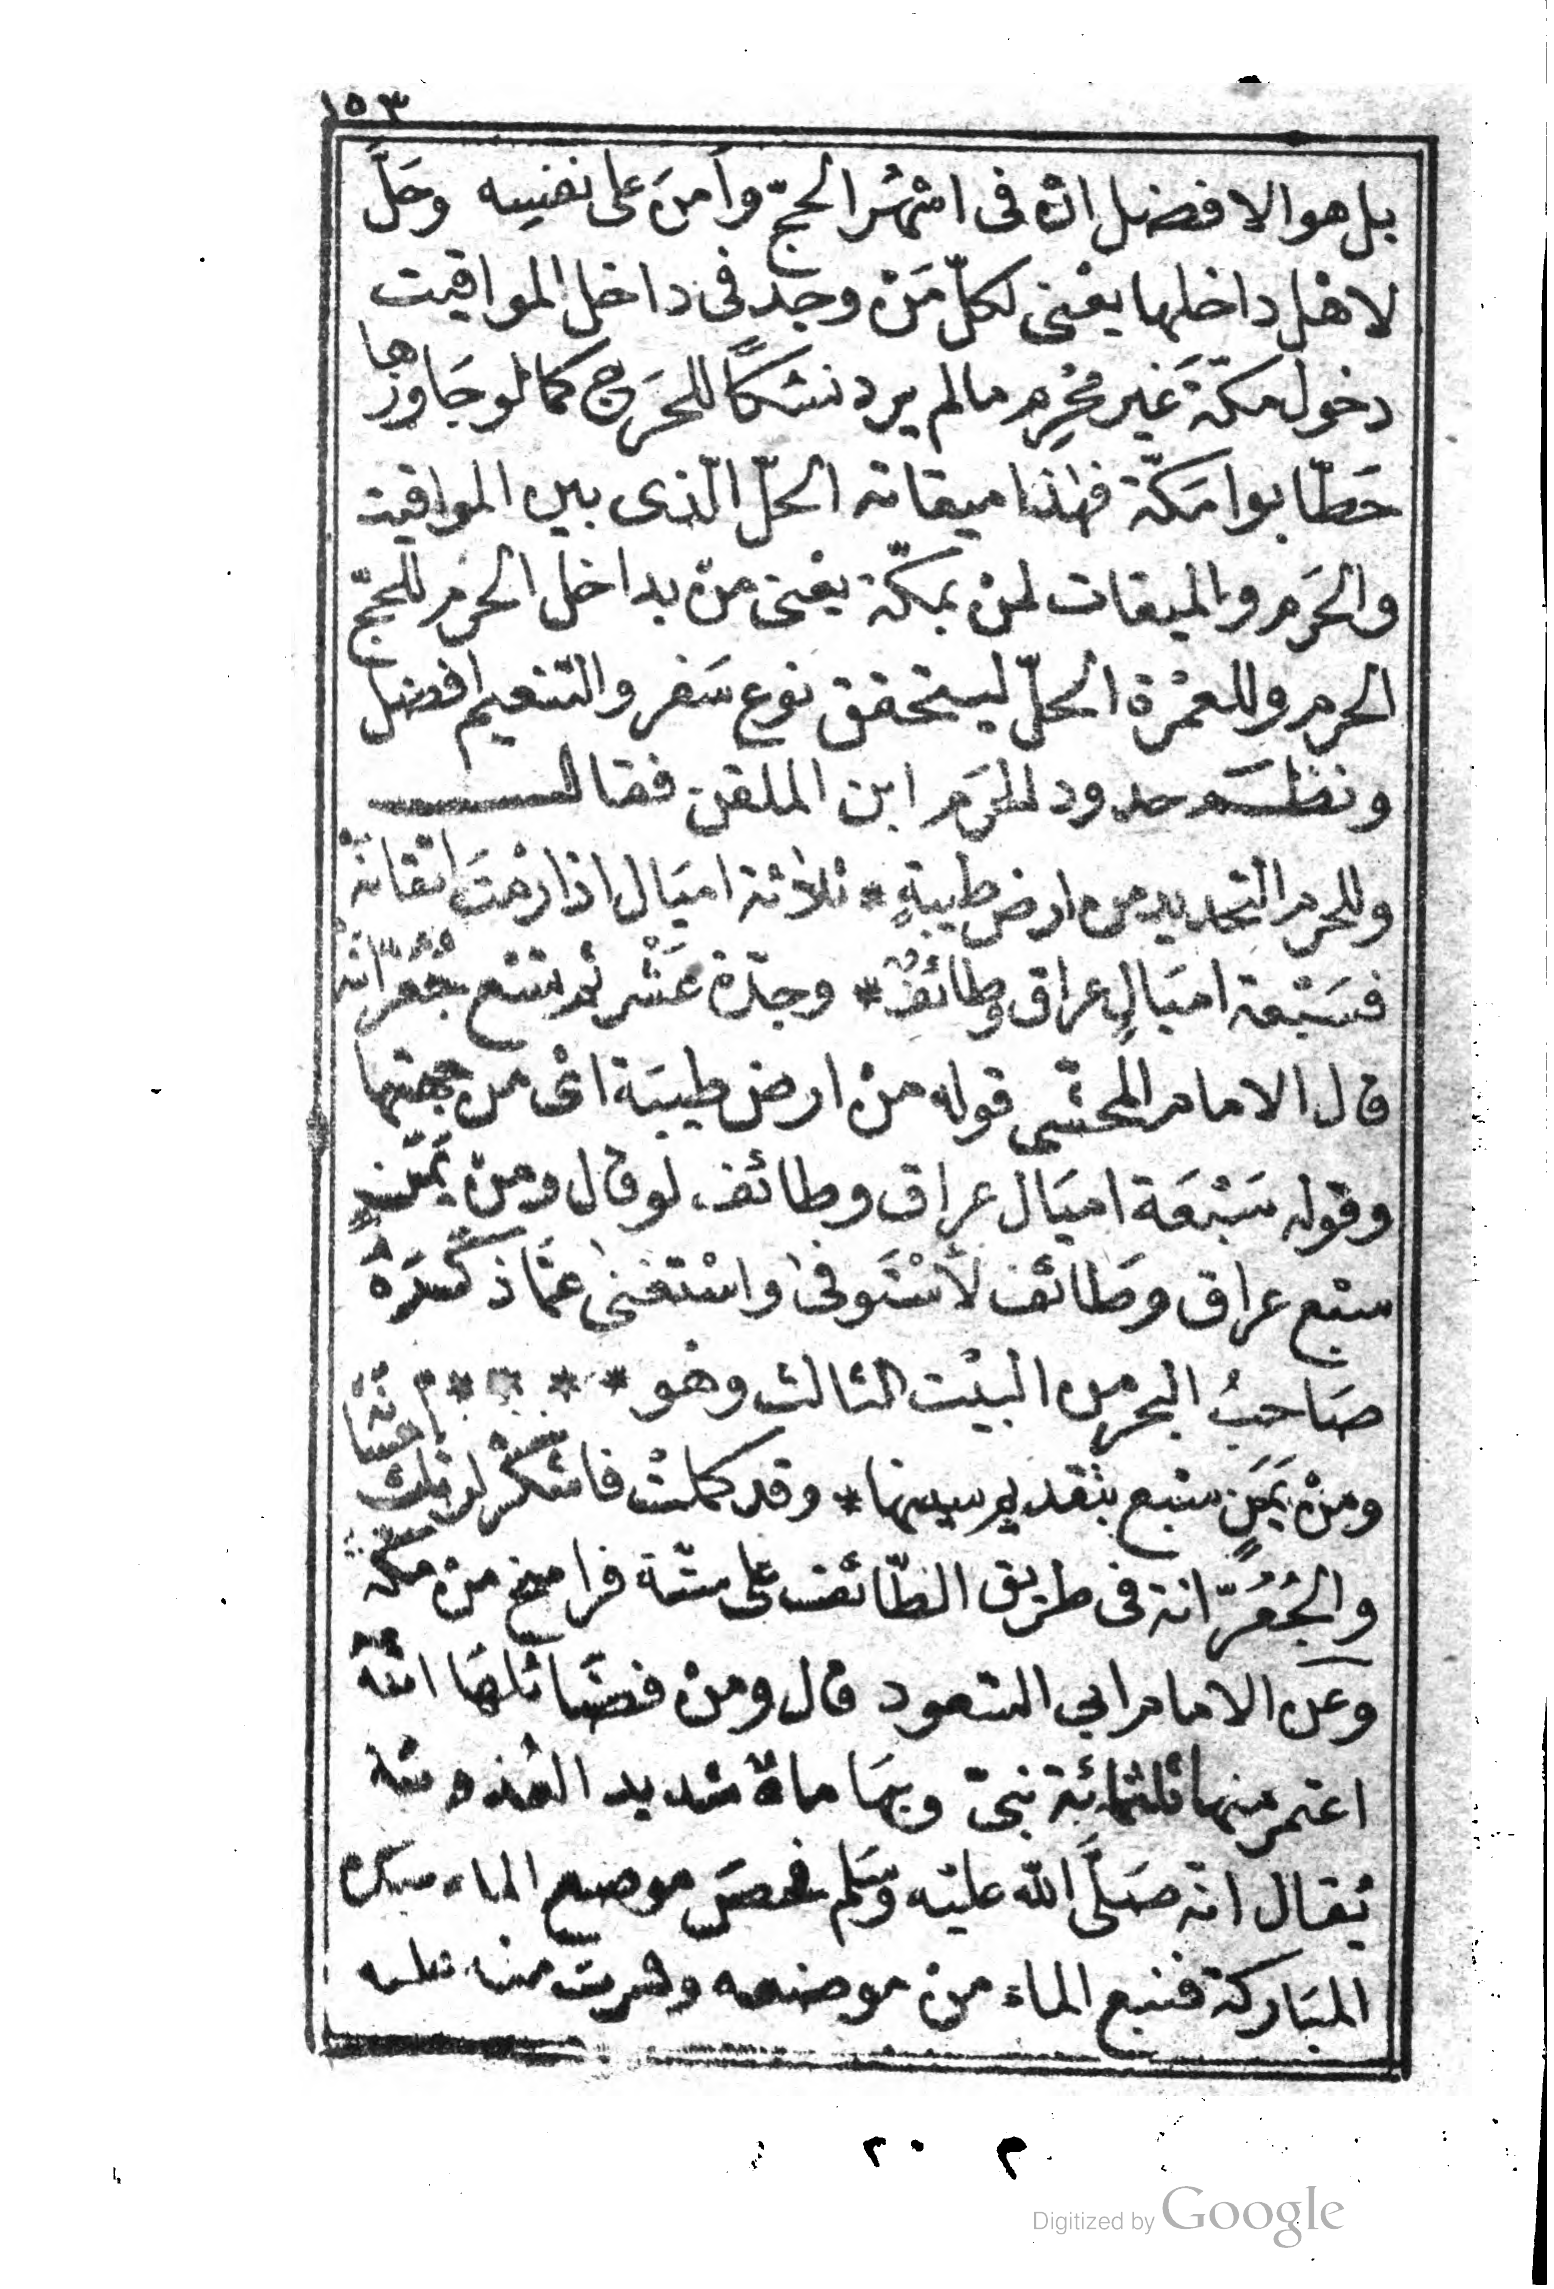 ١٥٣
بل هو الافضل ان فى اشهُر الحجّ وأمنَ على نفسِه وحَلَّ
لاهْل داخلها يعْنى لكلّ مَنْ وجد فى داخل المواقيت
دخول مكّة غَير مُحْرِم مالم يرد نسُكًا للحَرَج كما لو جَاوزها
حَطّابوا مَكّة فهٰذا ميقاته الحلّ الّذى بين المواقيت
والحَرَم والميقات لمنْ بمكّة يعْنى منْ بداخل الحَرَم للحجّ
الحرم وللعمْرة الحلّ ليتحقق نوع سَفر والتنعيم افضل
ونظَم حدود الحَرَم ابن الملقن فقال
وللحرم التحديد من ارض طيبةٍ * ثلاثة اميَال اذا رمْتَ اتقانَهْ
فسَبْعة اميَالٍ عراق وطائفٌ * وجدّة عَشْر ثم تسْع جُعُرّانَهْ
قال الامام المحشّى قوله منْ ارض طيبَة اىْ من جهتها
وقوله سَبْعَة اميَال عراق وطائف لو قال ومنْ يَمَنٍ
سبْع عراق وطَائف لاسْتَوفىٰ واسْتغنىٰ عمَّا ذكَرَهُ
صَاحبُ البحر من البيْت الثالث وهو * * * * *
ومنْ يَمَنٍ سبْع بتقديم سينها * وقد كملتْ فاشكُرْ لربّك احسَانَهْ
والجُعُرّانة فى طريق الطّائف على ستّة فراسخ منْ مكّة
وعَن الامام ابى السّعود قال ومنْ فضَائلهَا انّهُ
اعتمر منها ثلثمائة نبىّ وبهَا ماءٌ شديد العُذوبَة
يُقال انّه صَلَّى اللّٰه عليْه وسَلّم فحصَ موضع الماء بيَده
المبَاركة فنبع الماء منْ موضعه وشربَ منه
م ٢٠
Digitized by Google